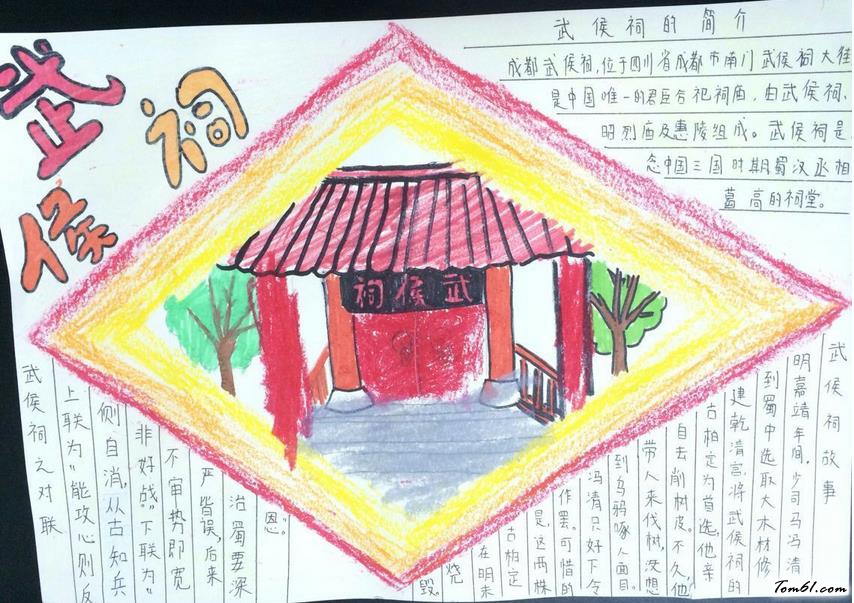 武侯祠
武侯祠的简介
成都武侯祠,位于四川省成都市南门武侯祠大街
是中国唯一的君臣合祀祠庙,由武侯祠、
昭烈庙及惠陵组成。武侯祠是
念中国三国时期蜀汉丞相
葛亮的祠堂。
武侯祠
武侯祠故事
明嘉靖年间,少司马冯清
到蜀中选取大木材修
建乾清宫,将武侯祠的
古柏定为首选,他亲
自去削树皮。不久,他
带人来伐树,没想
到乌鸦啄人面目。
冯清只好下令
作罢。可惜的
是,这两株
古柏定
在明末
烧
毁。
武侯祠之对联
上联为“能攻心则反
侧自消,从古知兵
非好战”下联为“
不审势即宽
严皆误,后来
治蜀要深
思”。
Tom61.com